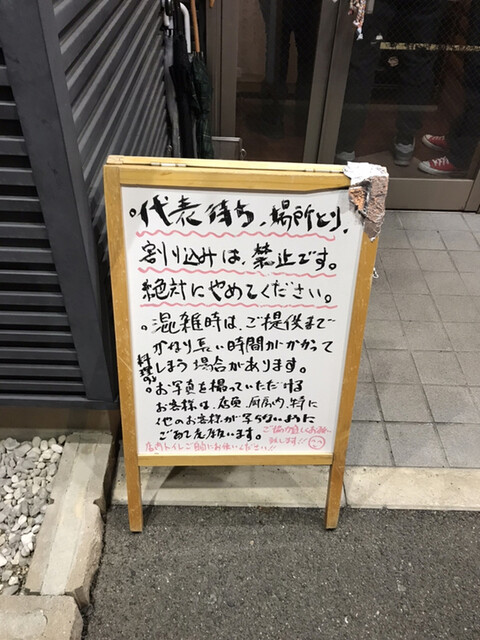 。代表待ち、場所とり、
割り込みは、禁止です。
絶対にやめてください。
。混雑時は、ご提供まで
かなり長い時間がかかって
しまう場合があります。
料理の
。お写真を撮っていただける
お客様は、店員、厨房内、特に
他のお客様が写らないように
ご協力お願い
致します!!
店内トイレご自由にお使いください!!